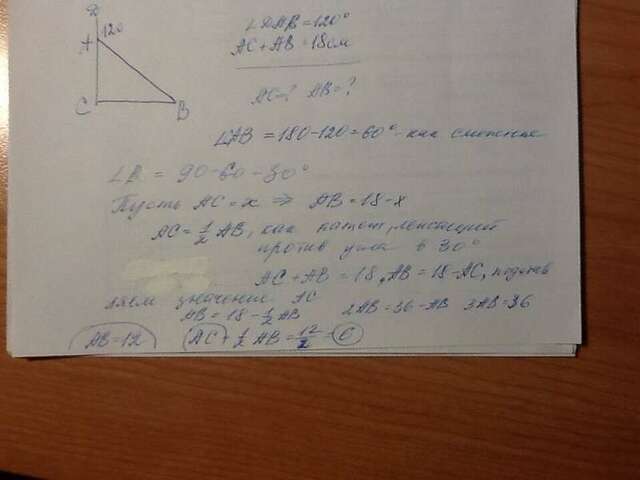 D
120
A
C
B
∠DAB = 120°
AC + AB = 18 см
AC = ? AB = ?
∠AB = 180 - 120 = 60° - как смежные
∠B = 90 - 60 = 30°
Пусть AC = x ⇒ AB = 18 - x
AC = 1/2 AB, как катет, лежащий
против угла в 30°
AC + AB = 18, AB = 18 - AC, подстав
ляем значение AC
AB = 18 - 1/2 AB 2AB = 36 - AB 3AB = 36
AB = 12 AC = 1/2 AB = 12/2 = 6